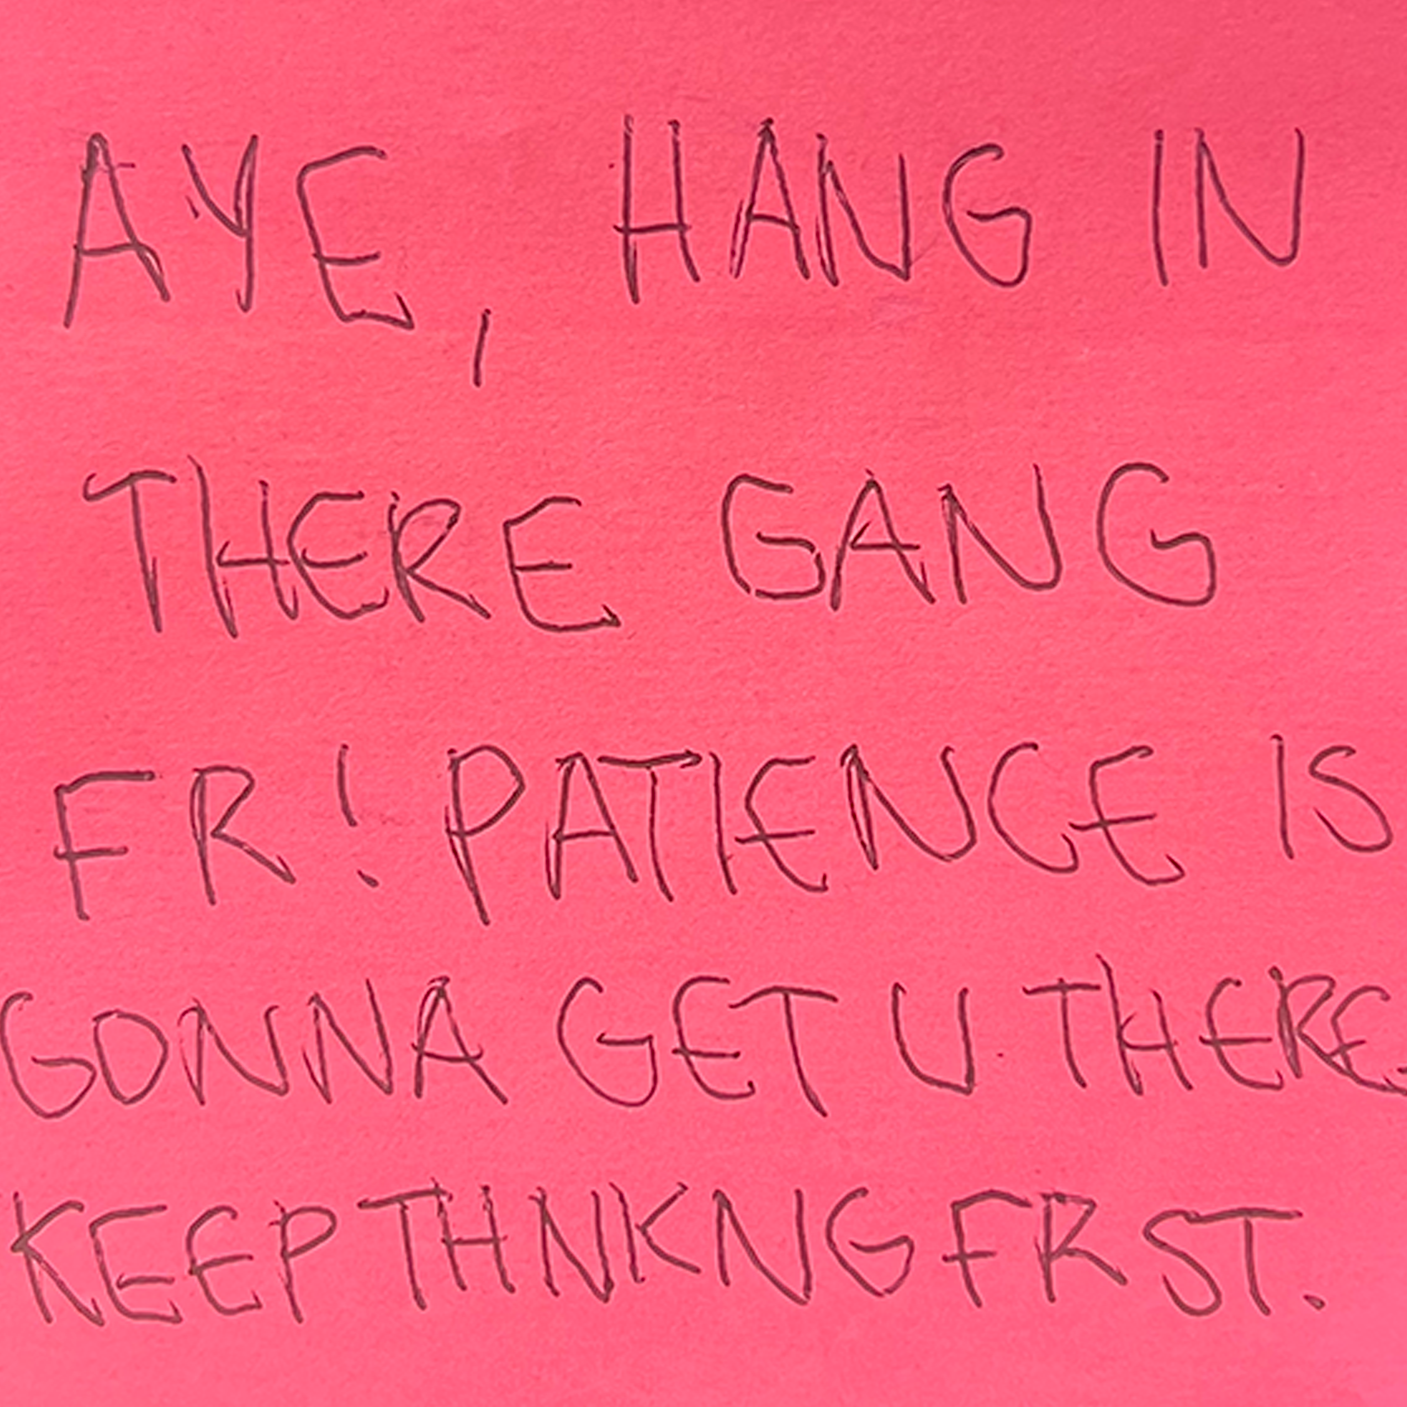 AYE, HANG IN
THERE GANG
FR! PATIENCE IS
GONNA GET U THERE.
KEEP THNKNG FRST.